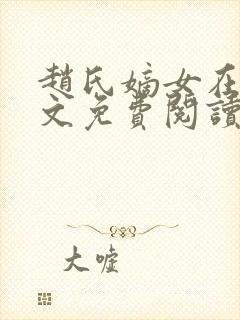 趙氏嫡女在
文免費閱讀
大噓